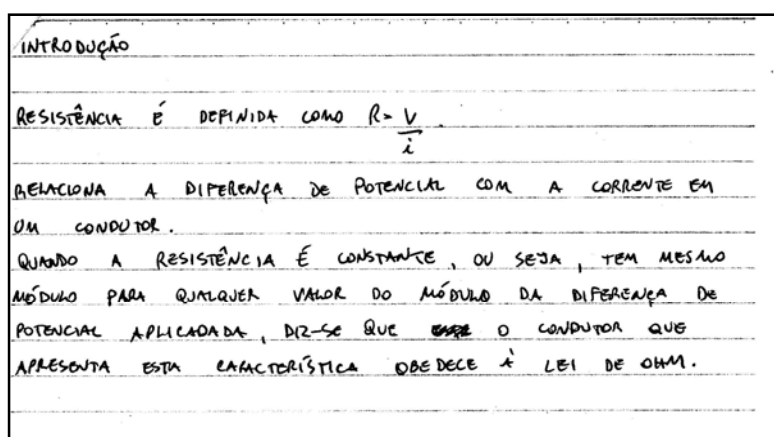 INTRODUÇÃO
RESISTÊNCIA É DEFINIDA COMO R = V/i.
RELACIONA A DIFERENÇA DE POTENCIAL COM A CORRENTE EM
UM CONDUTOR.
QUANDO A RESISTÊNCIA É CONSTANTE, OU SEJA, TEM MESMO
MÓDULO PARA QUALQUER VALOR DO MÓDULO DA DIFERENÇA DE
POTENCIAL APLICADADA, DIZ-SE QUE O CONDUTOR QUE
APRESENTA ESTA CARACTERÍSTICA OBEDECE À LEI DE OHM.